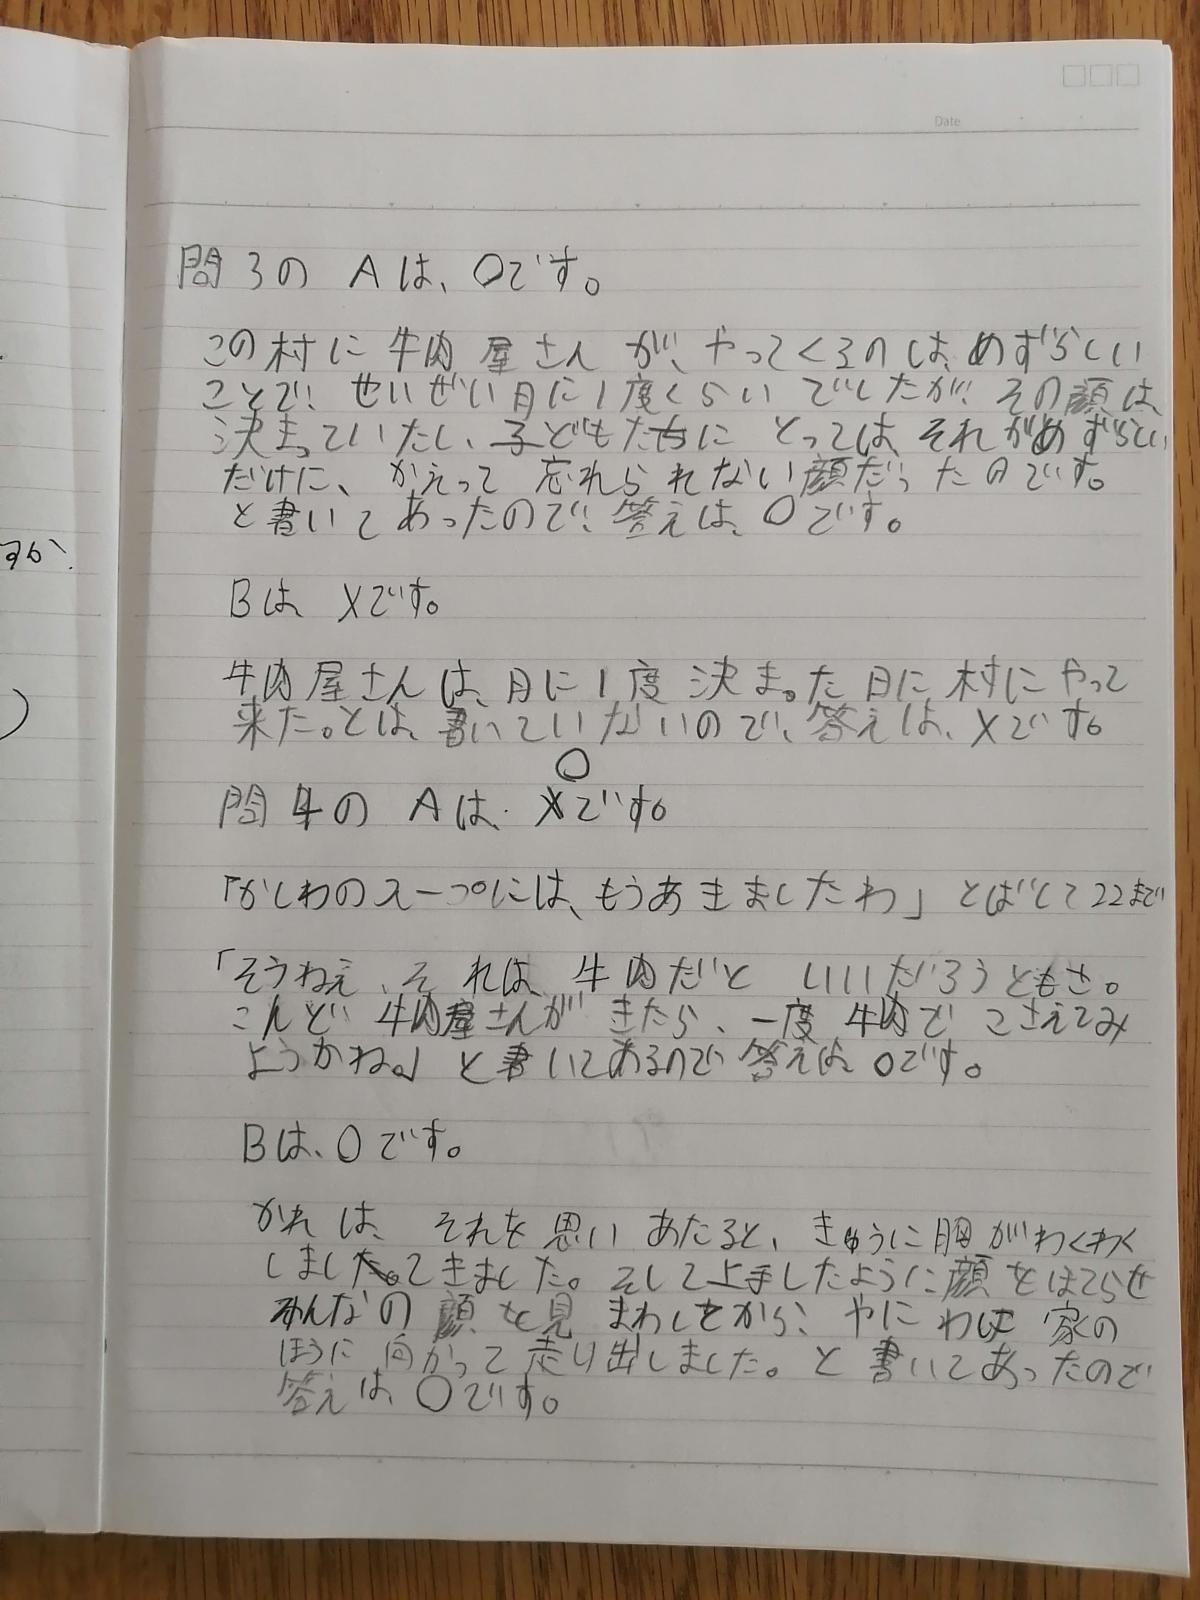 Date
すか.
)
問3の Aは、〇です。
この村に牛肉屋さんが、やってくるのは、めずらしい
ことで、せいぜい月に1度くらいでしたが、その顔は、
決まっていたし、子どもたちにとっては、それがめずらしい
だけに、かえって忘れられない顔だったのです。
と書いてあったので、答えは、〇です。
Bは、×です。
牛肉屋さんは、月に1度決まった日に村にやって
来た。とは、書いていないので、答えは、×です。
〇
問4の Aは、×です。
「かしわのスープには、もうあきましたわ」とばして22まで
「そうねえ、それは、牛肉だといいだろうともさ。
こんど牛肉屋さんがきたら、一度牛肉でこさえてみ
ようかね。」と書いてあるので答えは、〇です。
Bは、〇です。
かれは、それを思いあたると、きゅうに胸がわくわく
しました。てきました。そして上手したように顔をほてらせ
みんなの顔を見まわしてから、やにわに家の
ほうに向かって走り出しました。と書いてあったので
答えは、〇です。